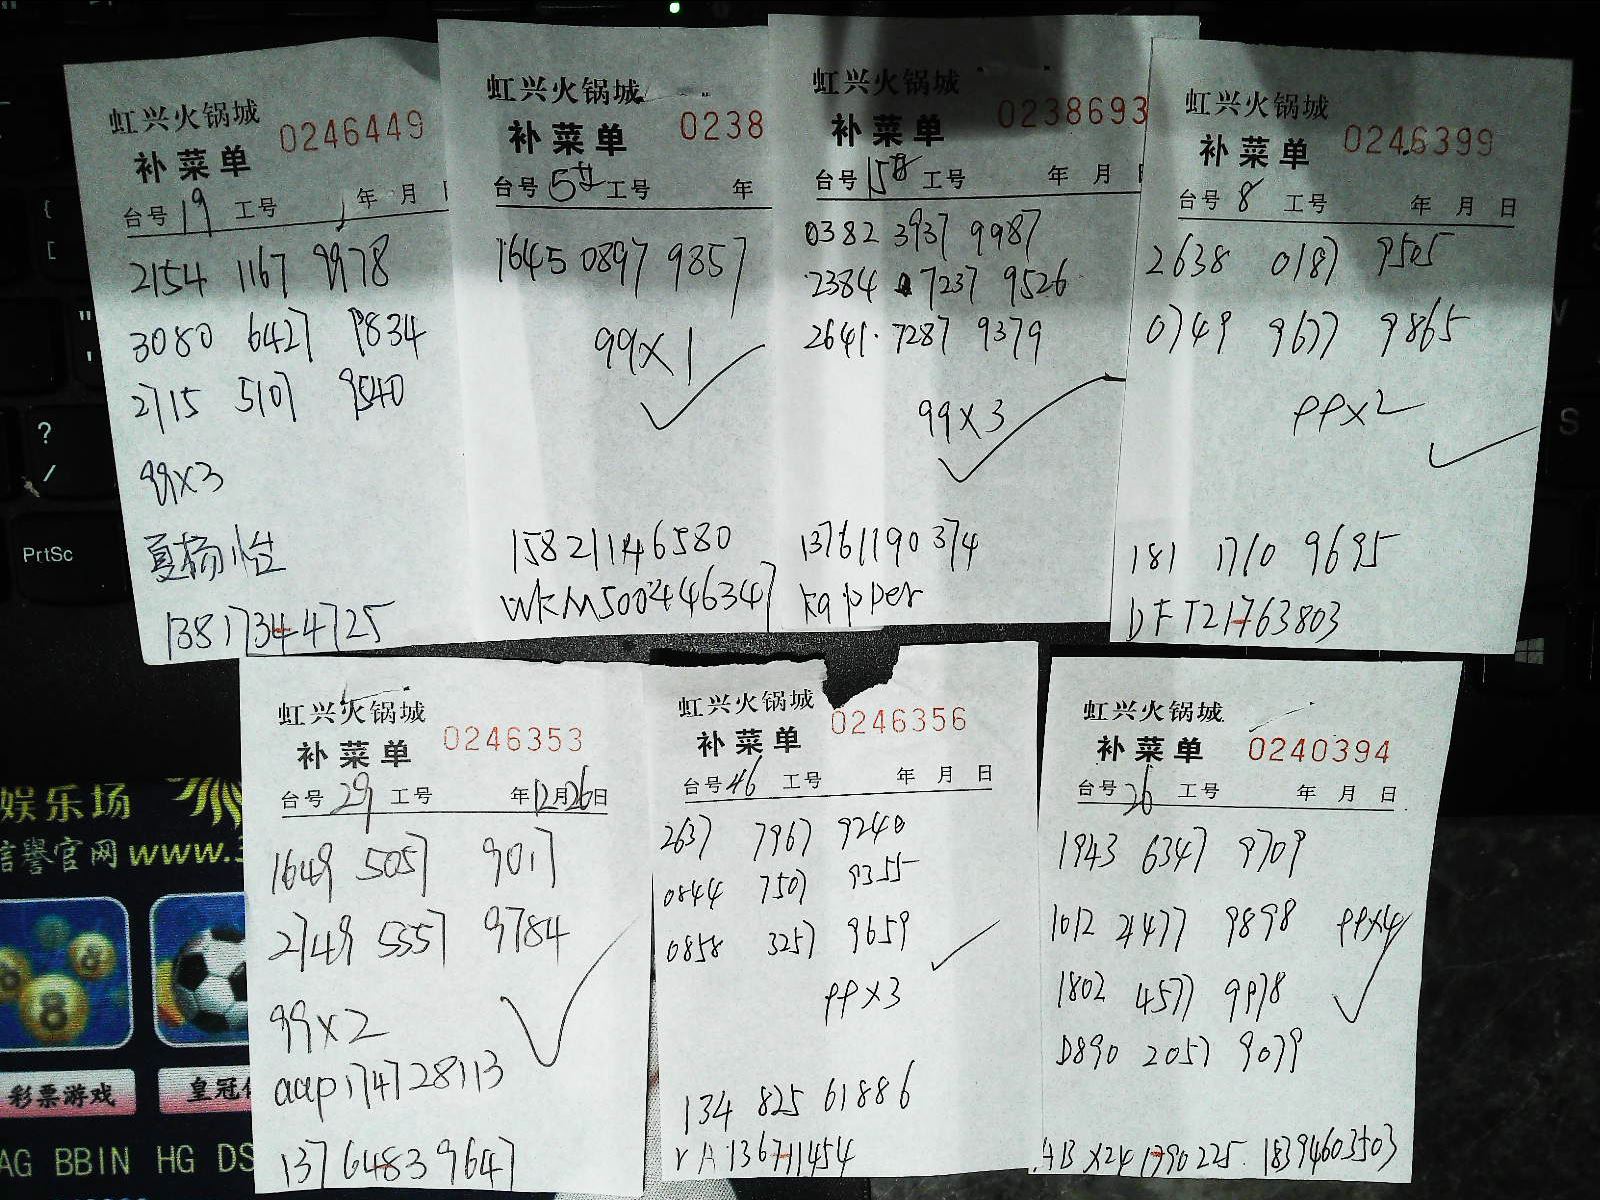 虹兴火锅城
补菜单 0246449
台号 19 工号 年 月
2154 1167 9978
3080 6427 9834
2715 5107 9540
99x3
夏杨怡
13817344725
虹兴火锅城
补菜单 0238
台号 5 工号 年
1645 0897 9857
99x1
15821146580
WKM5002446347
虹兴火锅城
补菜单 0238693
台号 15 工号 年 月
0382 3937 9987
2384 7237 9526
2641 7287 9379
99x3
13761190374
kapper
虹兴火锅城
补菜单 0246399
台号 8 工号 年 月 日
2638 0187 9505
0749 9677 9865
99x2
181 1710 9695
DFT21763803
虹兴火锅城
补菜单 0246353
台号 29 工号 年 12月26日
1649 5057 9017
2749 5557 9784
99x2
aap174728113
13764839647
虹兴火锅城
补菜单 0246356
台号 46 工号 年 月 日
2637 7967 9240
0844 7507 9355
0858 3257 9659
99x3
134 825 61886
虹兴火锅城
补菜单 0240394
台号 26 工号 年 月 日
1943 6347 9709
1012 2477 9898 99x4
1802 4577 9978
0890 2057 9079
ABX241790225. 18394603503
{
[
"
'
?
/
PrtSc
S
娱乐场
信誉官网www.3
8
彩票游戏
皇冠
AG BBIN HG DS